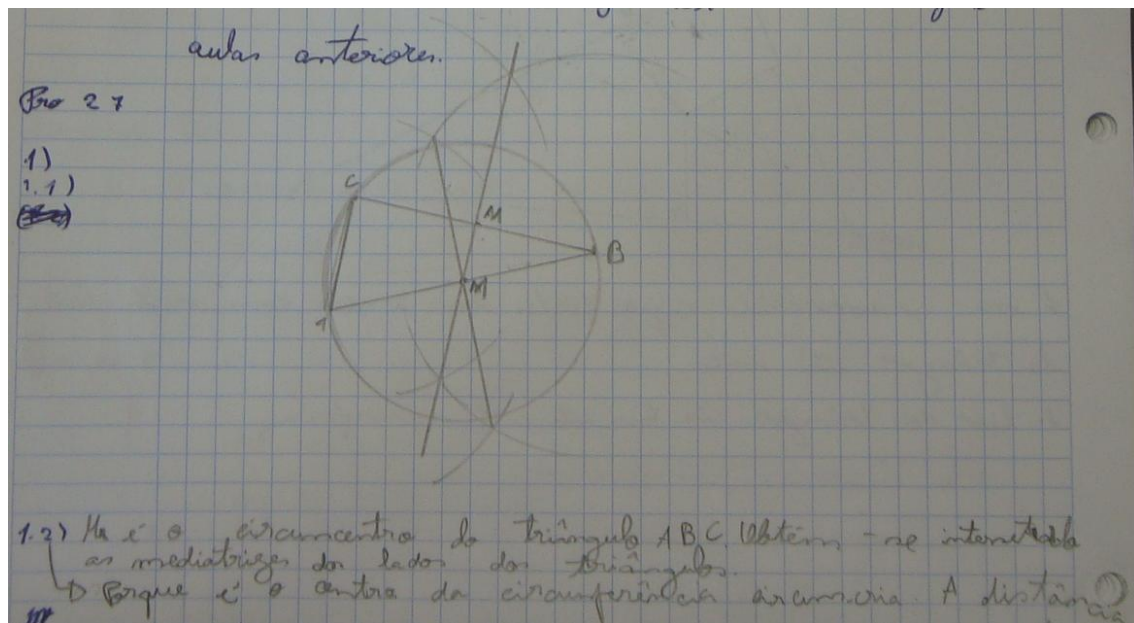 aulas anteriores.
Pro 27
1)
1.1)
C
M
B
M
A
1.2) M é o circuncentro do triângulo ABC. Obtém-se
as mediatrizes dos lados dos triângulos.
Porque é o centro da circunferência circunscria. A distância